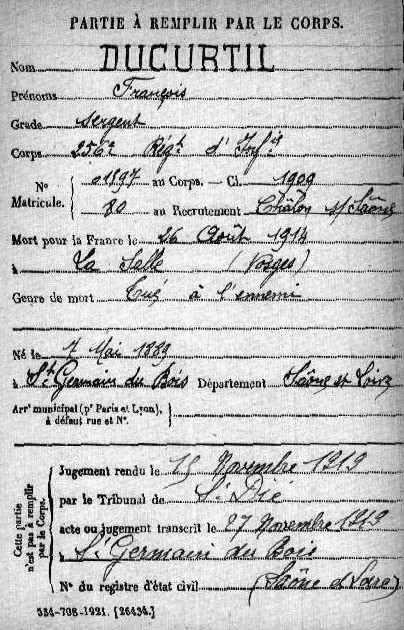 PARTIE À REMPLIR PAR LE CORPS.
Nom DUCURTIL
Prénoms François
Grade Sergent
Corps 256e Régt d'Infie
N° Matricule. 01597 au Corps. — Cl. 1909
80 au Recrutement Châlon s/ Saône
Mort pour la France le 26 Août 1914
à La Salle (Vosges)
Genre de mort Tué à l'ennemi
Né le 7 Mai 1889
à St Germain du Bois Département Saône et Loire
Arrt municipal (pr Paris et Lyon), à défaut rue et N°.
Cette partie n'est pas à remplir par le Corps.
Jugement rendu le 15 Novembre 1919
par le Tribunal de St Dié
acte ou jugement transcrit le 27 Novembre 1919
à St Germain du Bois
N° du registre d'état civil (Saône et Loire)
534-708-1921. [26434.]